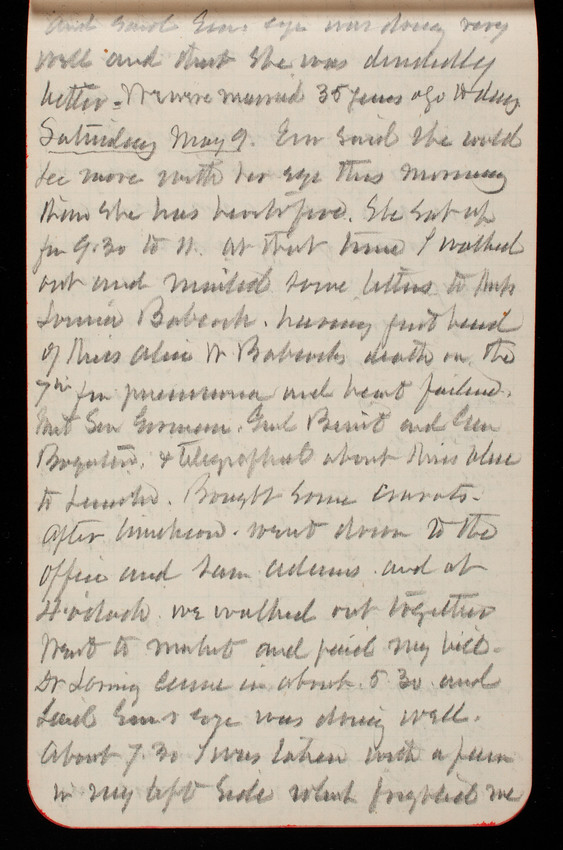 and said Em's eye was doing very
well and that she was decidedly
better. We were married 35 years ago to day
Saturday May 9. Em said she could
see more with her eye this morning
than she has heretofore. She sat up
for 9.30 to 11. at that time I walked
out and mailed some letters to Mrs
Louisa Babcock. having just heard
of Miss Alice W Babcocks death on the
7th fm pneumonia and heart failure.
Met Sen Gorman. Genl Benet and Gen
& telegraphed about Miss Alice
to Lincoln. Bought some cravats.
After luncheon. went down to the
office and saw Adams. and at
4 o'clock we walked out together
Went to market and paid my bill.
Dr Loring came in about 5 30 and
said Em's eye was doing well.
About 7.30 I was taken with a pain
in my left side which frighted me